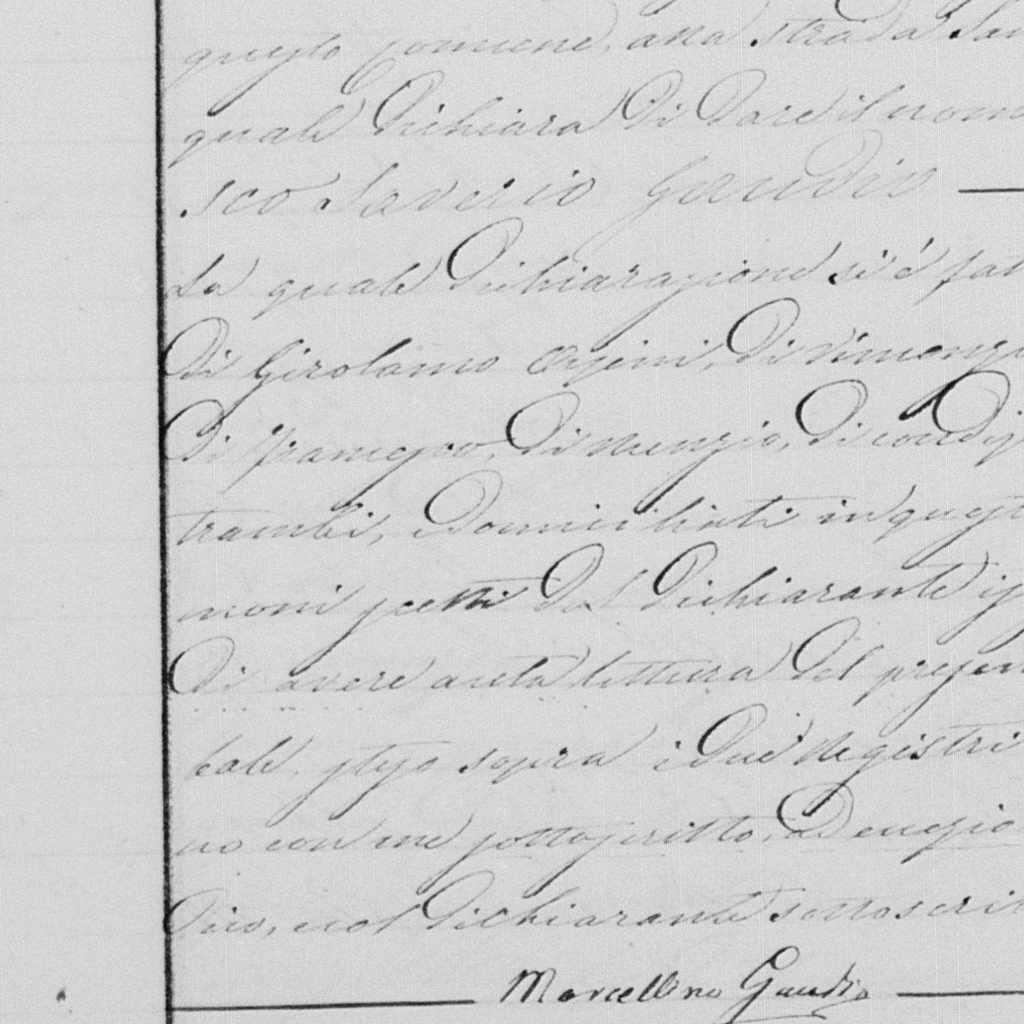 questo comune, alla strada San
quale dichiara di dare il nome
sco Saverio Gaudio
La quale dichiarazione si è fat
di Girolamo Orsini, di Vincenzo
di Francesco, di Nunzio, di condiz
trambi, domiciliati in quest
moni scelti dal dichiarante is
di avere avuta lettura del presen
bale, steso sopra i due registri
no con me sottoscritto,
dico, e col dichiarante sottoscrit
Marcellino Gaudio